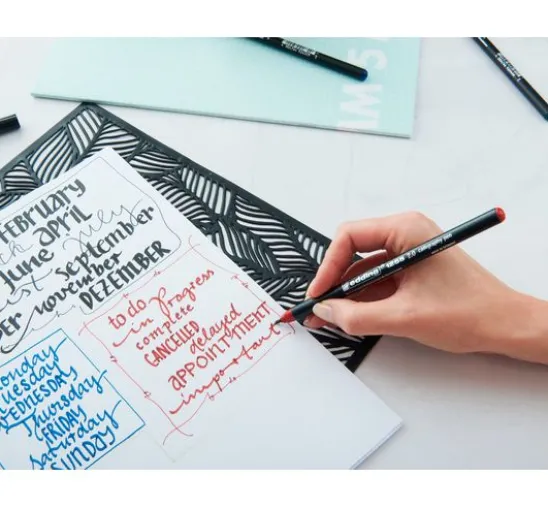 FEBRUARY
april
June July
September
november
DEZEMBER
to do
in progress
complete
CANCELLED delayed
APPOINTMENT
important
TUESDAY
WEDNESDAY
Thursday
FRIDAY
saturday
SUNDAY
edding 1255 2.0 calligraphy pen